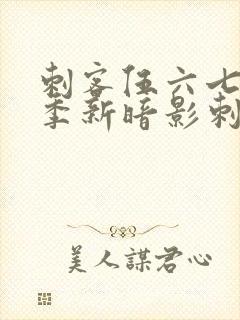 刺客伍六七
季新暗影刺
美人謀君心